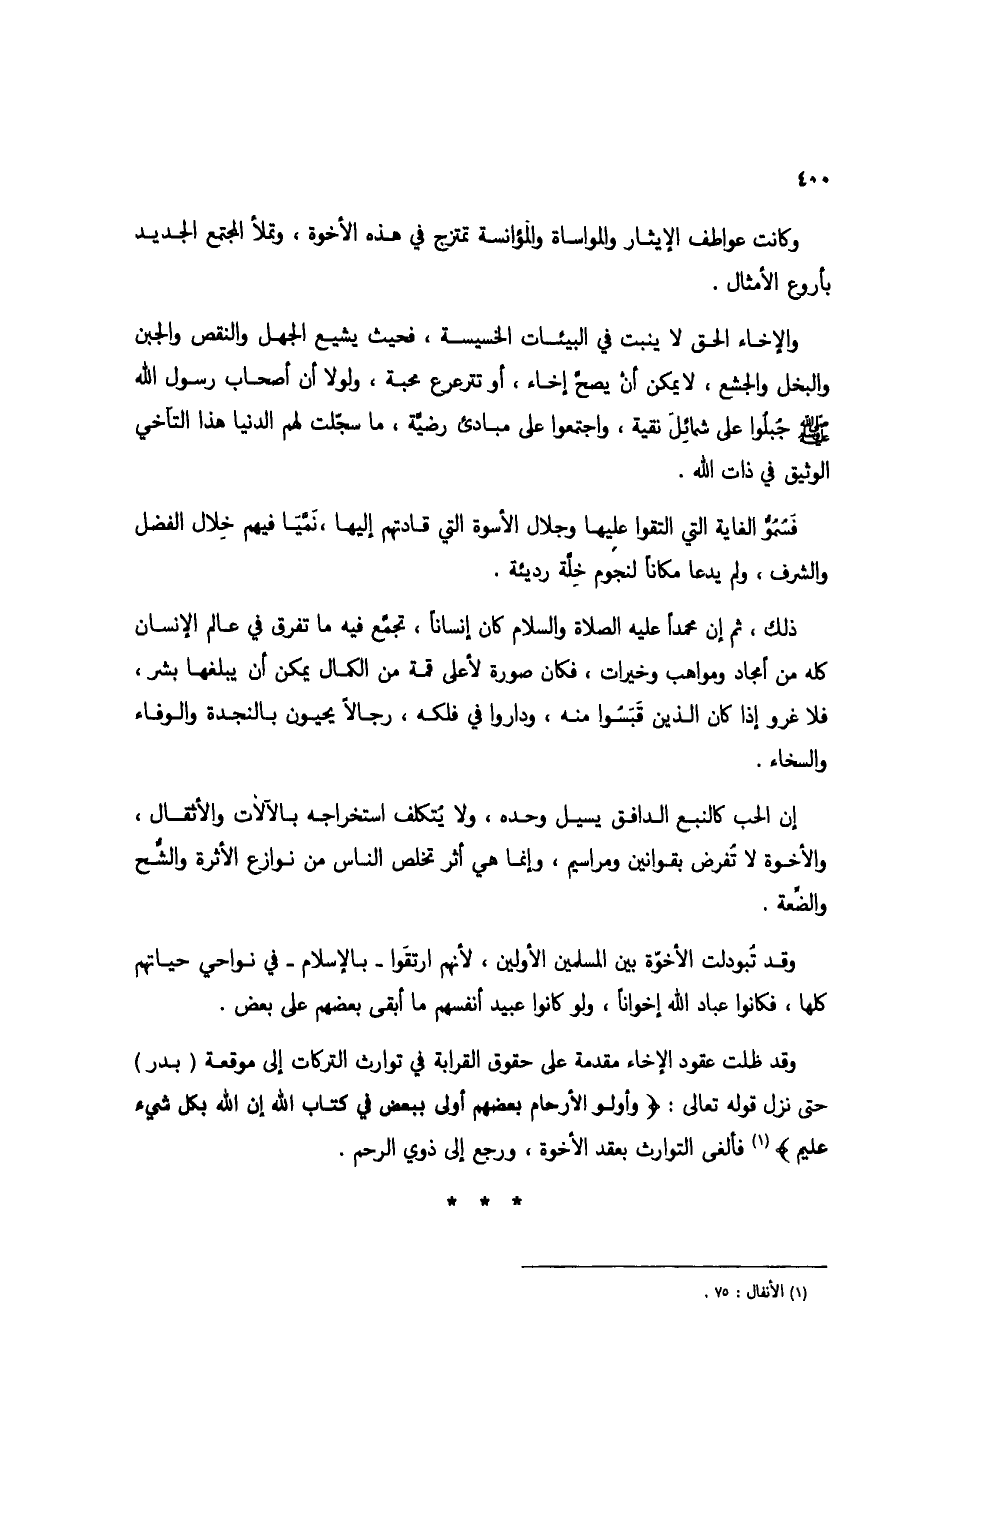 ٤٠٠
وكانت عواطف الإيثار والمواساة والمؤانسة تمتزج في هذه الأخوة ، وتملأ المجتمع الجديد
بأروع الأمثال .
والإخاء الحق لا ينبت في البيئات الخسيسة ، فحيث يشيع الجهل والنقص والجبن
والبخل والجشع ، لايمكن أنْ يصحَّ إخاء ، أو تترعرع محبة ، ولولا أن أصحاب رسول الله
ﷺ جُبلُوا على شمائِلَ نقية ، واجتمعوا على مبادئ رضيَّة ، ما سجّلت لهم الدنيا هذا التآخي
الوثيق في ذات الله .
فَسُمُوُّ الغاية التي التقوا عليها وجلال الأسوة التي قادتهم إليها ،نَمَّيَا فيهم خِلال الفضل
والشرف ، ولم يدعا مكاناً لنجُوم خِلَّة رديئة .
ذلك ، ثم إن محمداً عليه الصلاة والسلام كان إنساناً ، تجمَّع فيه ما تفرق في عالم الإنسان
كله من أمجاد ومواهب وخيرات ، فكان صورة لأعلى قمة من الكمال يمكن أن يبلغها بشر ،
فلا غرو إذا كان الذين قَبَسُوا منه ، وداروا في فلكه ، رجالاً يحيون بالنجدة والوفاء
والسخاء .
إن الحب كالنبع الدافق يسيل وحده ، ولا يُتكلف استخراجه بالآلات والأثقال ،
والأخوة لا تُفرض بقوانين ومراسيم ، وإنما هي أثر تخلص الناس من نوازع الأثرة والشُّح
والضَّعة .
وقد تُبودلت الأخوّة بين المسلمين الأولين ، لأنهم ارتقَوا ـ بالإسلام ـ في نواحي حياتهم
كلها ، فكانوا عباد الله إخواناً ، ولو كانوا عبيد أنفسهم ما أبقى بعضهم على بعض .
وقد ظلت عقود الإخاء مقدمة على حقوق القرابة في توارث التركات إلى موقعة ( بدر )
حتى نزل قوله تعالى : ﴿ وأولو الأرحام بعضهم أولى ببعض في كتاب الله إن الله بكل شيء
عليم ﴾ (١) فألغى التوارث بعقد الأخوة ، ورجع إلى ذوي الرحم .
* * *
(١) الأنفال : ٧٥ .